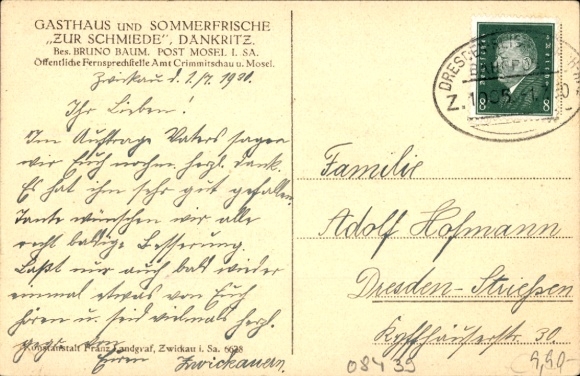 GASTHAUS UND SOMMERFRISCHE
„ZUR SCHMIEDE”, DANKRITZ.
Bes. BRUNO BAUM. POST MOSEL I. SA.
Öffentliche Fernsprechstelle Amt Crimmitschau u. Mosel.
Zwickau d. 1/7. 1930.
Ihr Lieben!
Im Auftrage Vaters sagen
wir Euch nochm. herzl. Dank.
Es hat ihm sehr gut gefallen.
Tante wünschen wir alle
recht baldige Besserung.
Laßt nur auch bald wieder
einmal etwas von Euch
hören u. seid vielmals herzl.
gegr. von
Euren Zwickauern.
Kunstanstalt Franz Landgraf, Zwickau i. Sa. 6628
DRESDEN
Z.
8 8
Familie
Adolf Hofmann
Dresden-Strießen
Kyffhäuserstr. 30.
08439
9,90